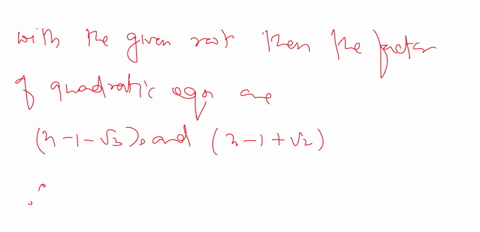 with the given root then the factor
of quadratic eqn are
(x-1-√3), and (x-1+√2)
∴